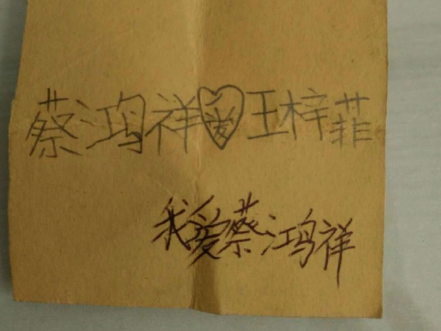 蔡鸿祥爱王梓菲
我爱蔡鸿祥